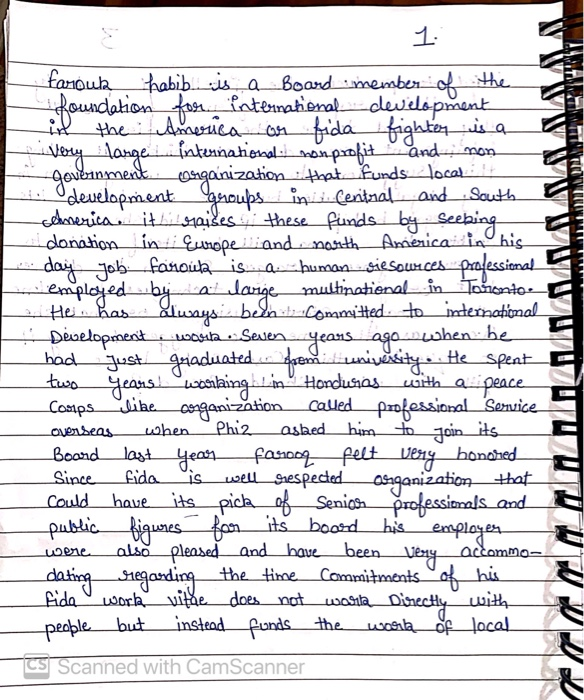 1.
farouk habib is a Board member of the
foundation for international development
in the America or fida fighter is a
very large international nonprofit and non
government organization that funds local
development groups in Central and South
America. it raises these funds by seeking
donation in Europe and north America in his
day job farouk is a human resources professional
employed by a large multinational in Toronto.
He has always been committed to international
Development work. Seven years ago when he
had Just graduated from university. He spent
two years working in Honduras with a peace
Corps like organization called professional Service
overseas when Phiz asked him to Join its
Board last year farooq felt very honored
Since fida is well respected organization that
Could have its pick of Senior professionals and
public figures for its board his employer
were also pleased and have been very accommo-
dating regarding the time Commitments of his
fida work vitae does not work Directly with
people but instead funds the work of local
CS Scanned with CamScanner